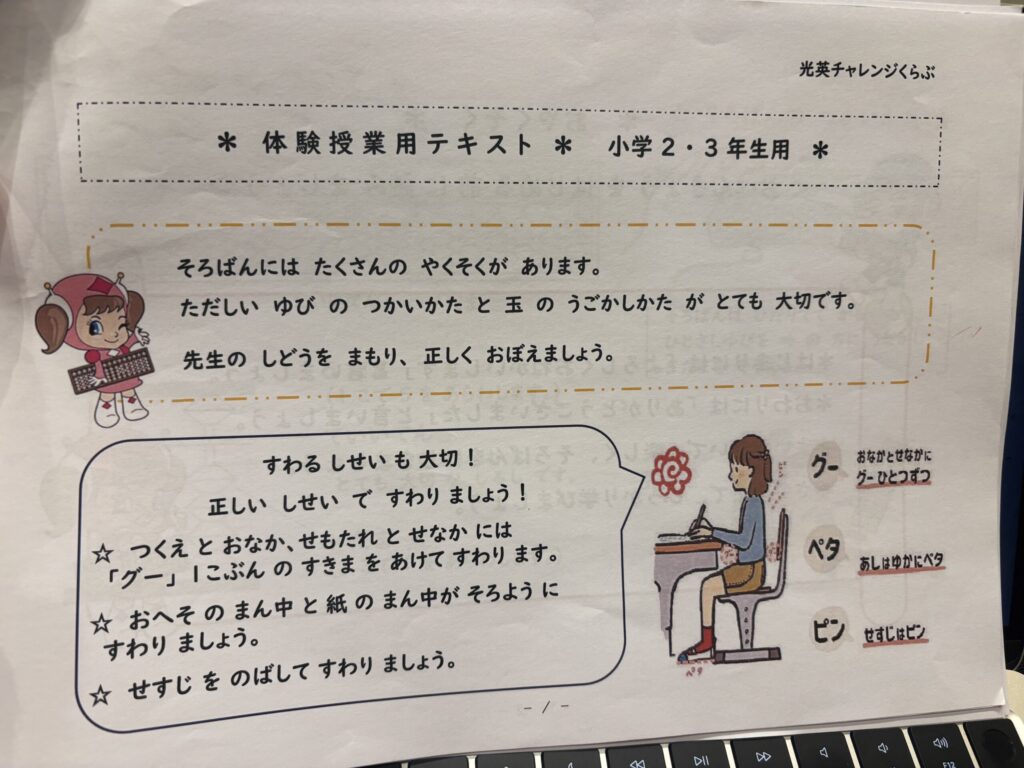 光英チャレンジくらぶ
＊ 体験授業用テキスト ＊ 小学２・３年生用 ＊
そろばんには たくさんの やくそくが あります。
ただしい ゆび の つかいかた と 玉 の うごかしかた が とても 大切です。
先生の しどうを まもり、正しく おぼえましょう。
すわる しせい も 大切！
正しい しせい で すわり ましょう！
☆ つくえ と おなか、せもたれ と せなか には
「グー」１こぶん の すきま を あけて すわり ます。
☆ おへそ の まん中 と 紙 の まん中が そろよう に
すわり ましょう。
☆ せすじ を のばして すわり ましょう。
グー おなかとせなかに
グーひとつずつ
ペタ あしはゆかにペタ
ピン せすじはピン
ペタ
- 1 -
F12